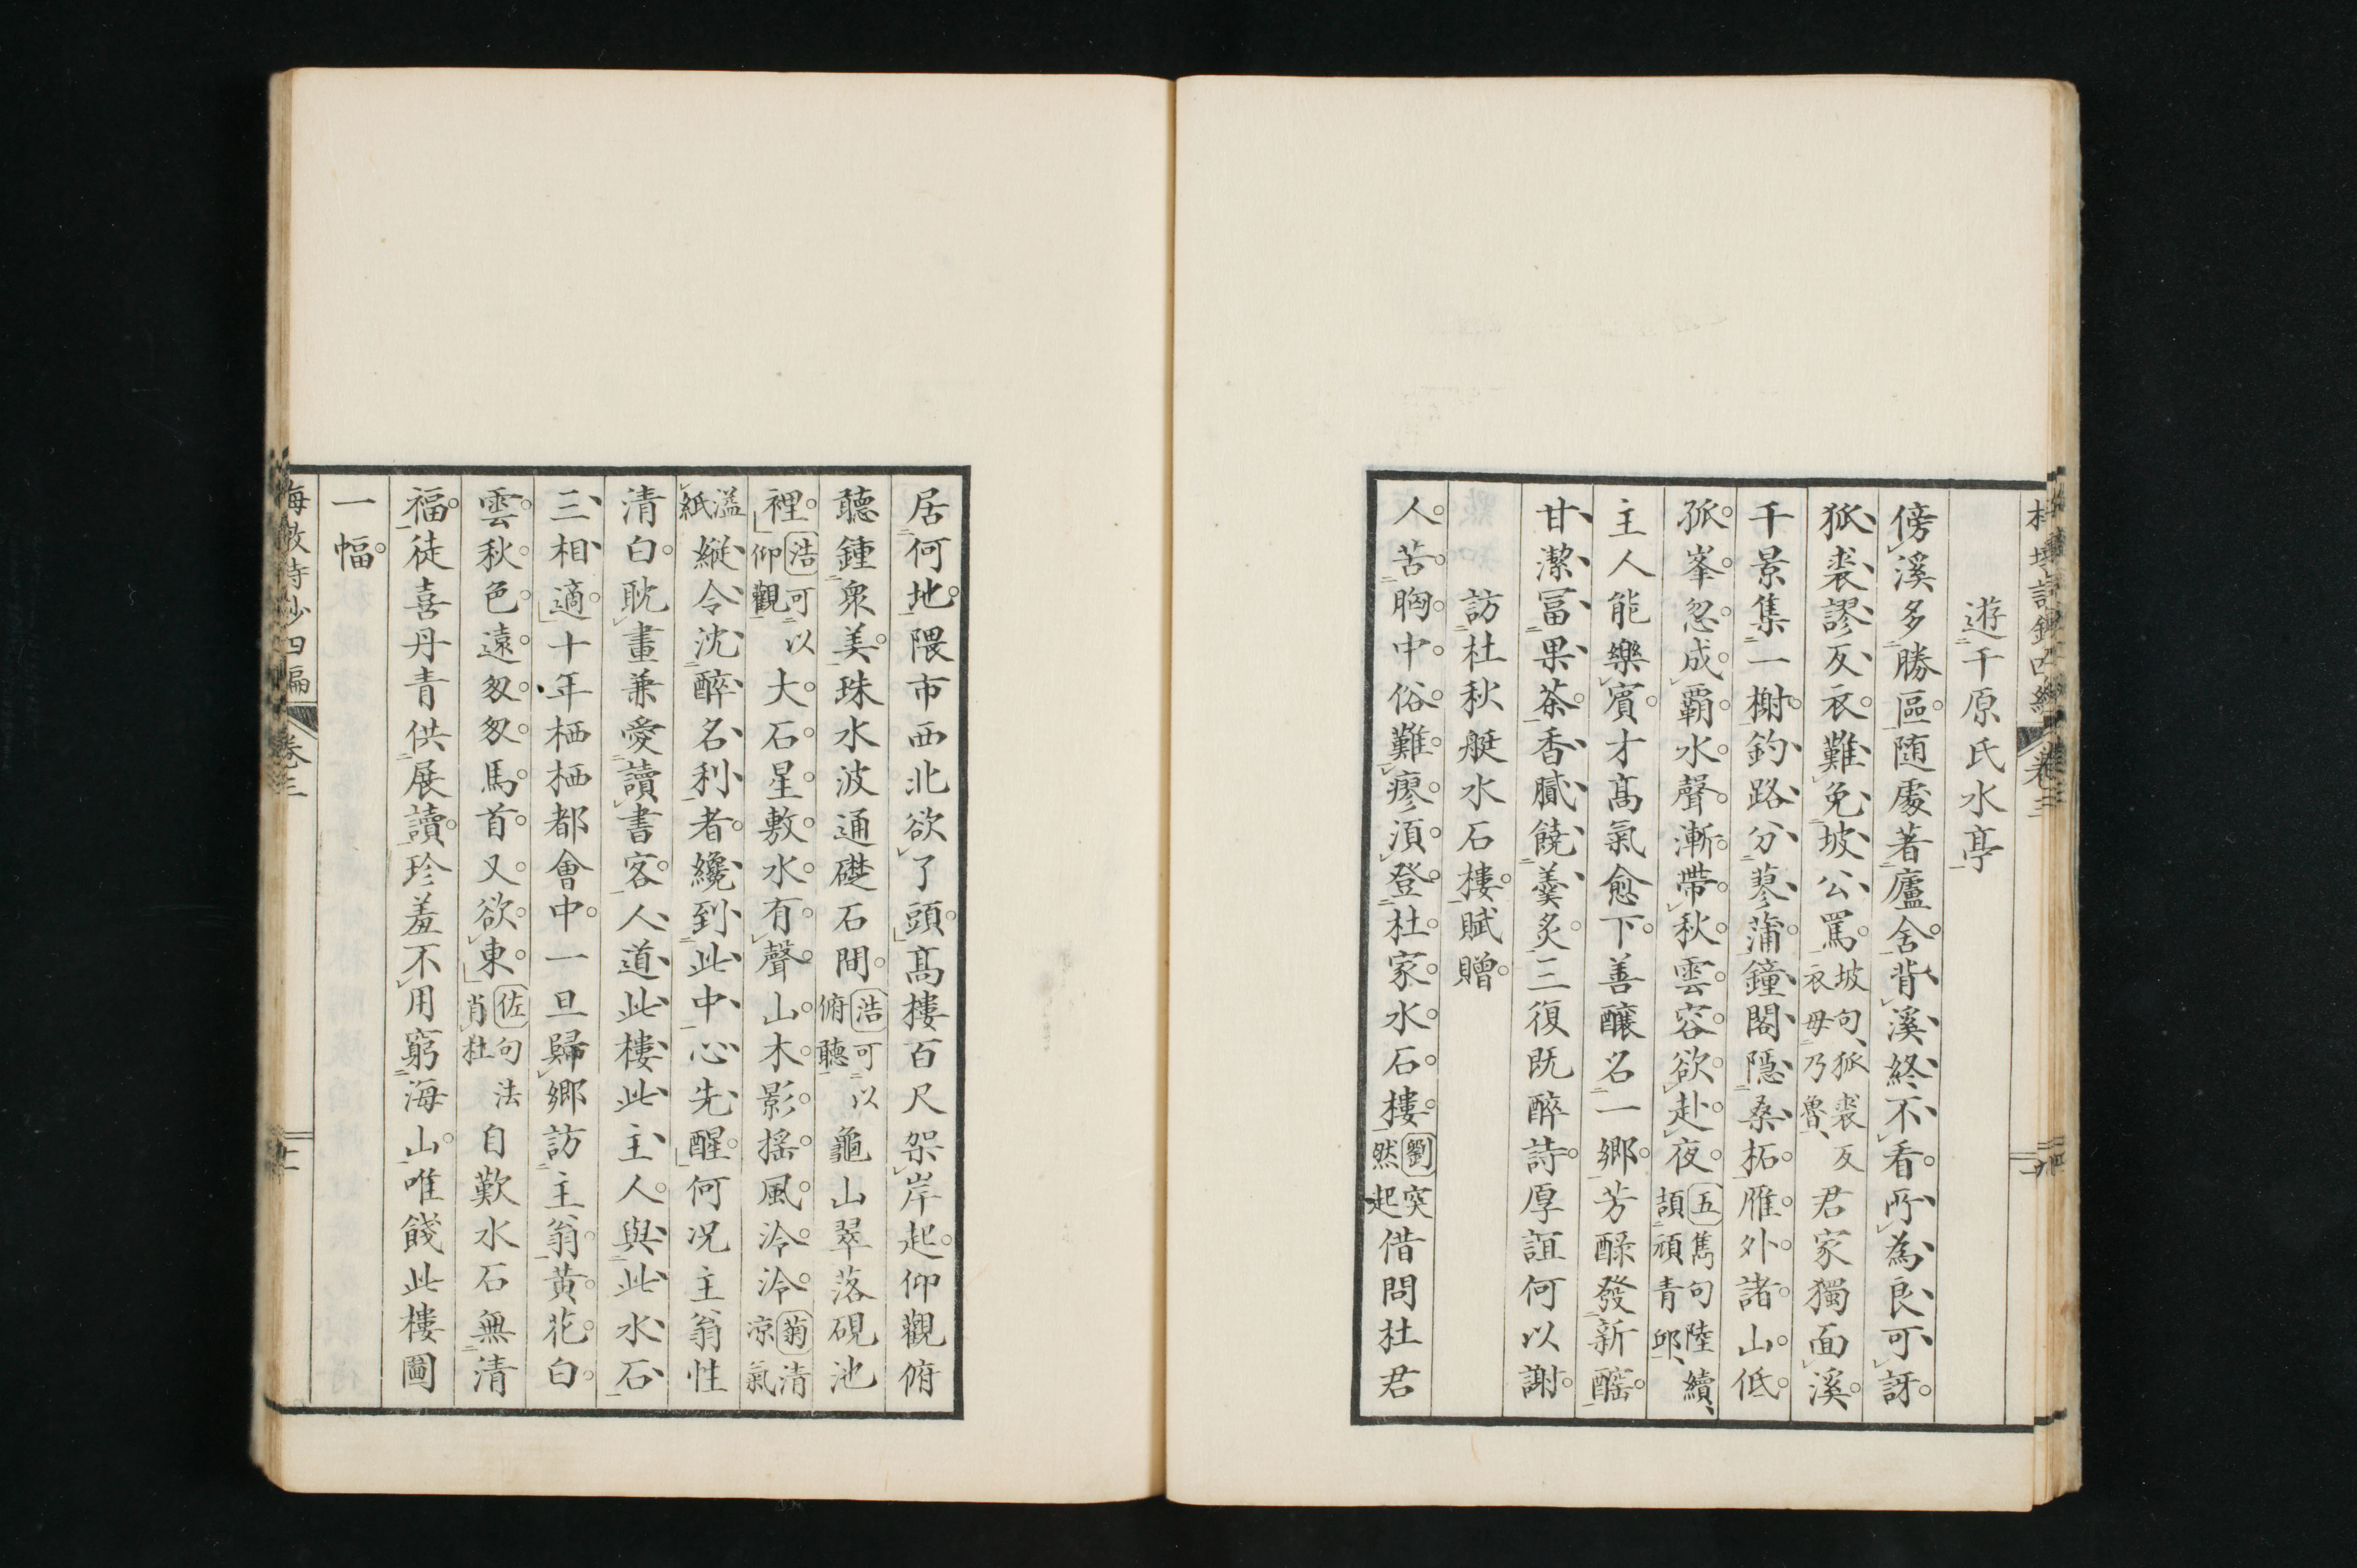 遊千原氏水亭
傍溪多勝區随處著廬舍背溪終不看所為良可訝
狐裘謬反衣難免坡公罵坡句狐裘反衣毋乃魯君家獨面溪
千景集一榭釣路分蓼蒲鐘閣隱桑柘雁外諸山低
孤峯忽成霸水聲漸帶秋雲容欲赴夜五雋句陸續頡頏青邱
主人能樂賓才高氣愈下善釀名一鄉芳醁發新醽
甘潔冨果茶香膩饒羹炙三復既醉詩厚誼何以謝
訪杜秋艇水石樓賦贈
人苦胸中俗難瘳須登杜家水石樓劉突然起借問杜君
居何地隈市西北欲了頭高樓百尺架岸起仰觀俯
聽鍾衆美珠水波通礎石間浩可以俯聽龜山翠落硯池
裡浩可以仰觀大石星敷水有聲山木影搖風泠泠菊清凉氣
溢紙縱令沈醉名利者纔到此中心先醒何況主翁性
清白耽畫兼愛讀書客人道此樓此主人與此水石
三相適十年栖栖都會中一旦歸鄉訪主翁黄花白
雲秋色遠匆匆馬首又欲東佐句法肖杜自歎水石無清
福徒喜丹青供展讀珍羞不用窮海山唯餞此樓圖
一幅
卷三